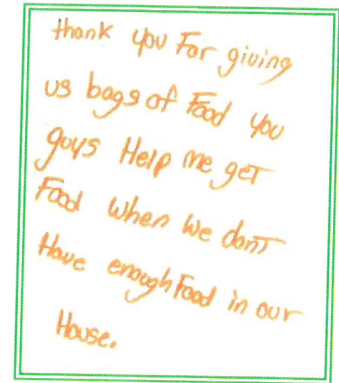 thank you For giving
us bags of Food you
guys Help me get
Food when we dont
Have enough Food in our
House.